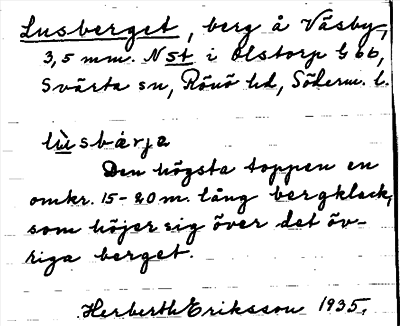 Lusberget, berg å Väsby,
3,5 mm. N St i Olstorp G 6b,
Svärta sn, Rönö hd, Söderm. l.
lùsbärja
Den högsta toppen en
omkr. 15-20 m. lång bergklack,
som höjer sig över det öv-
riga berget.
Herberth Eriksson 1935.